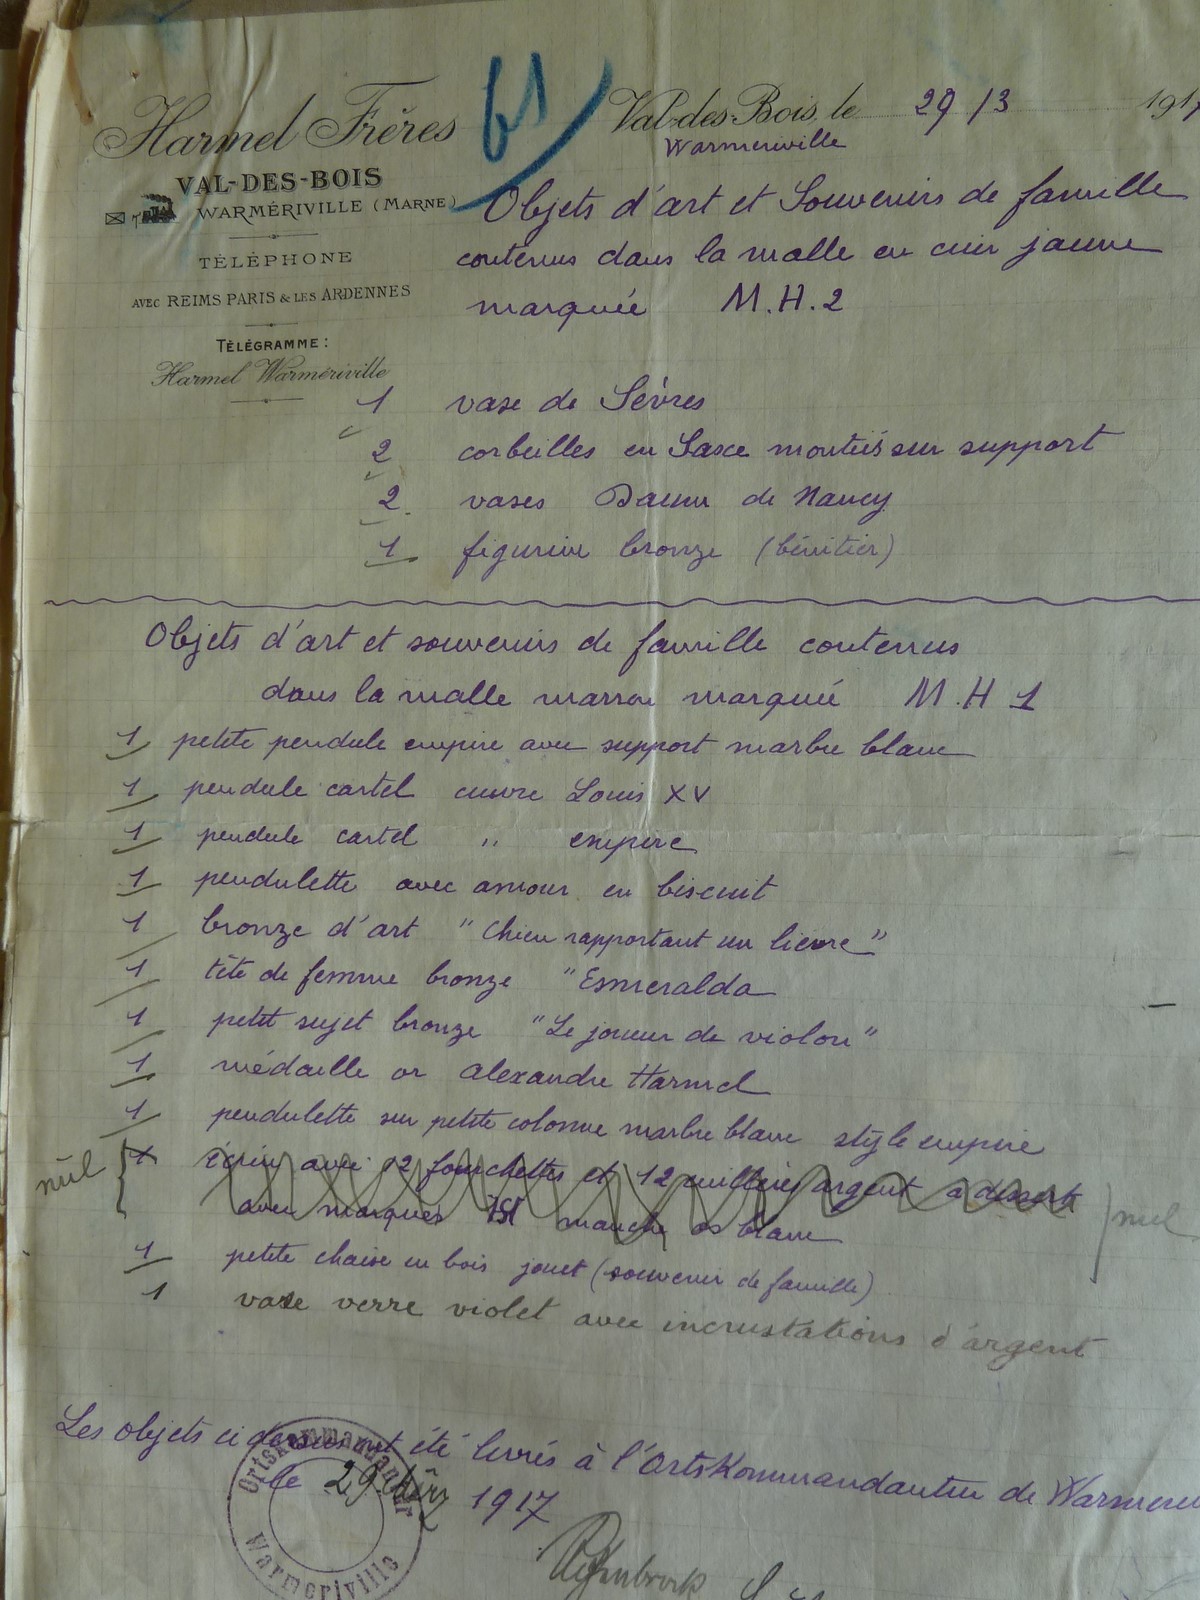 Harmel Frères
VAL-DES-BOIS
WARMÉRIVILLE (MARNE)
TÉLÉPHONE
AVEC REIMS PARIS & LES ARDENNES
TÉLÉGRAMME :
Harmel Warmériville
61
Val-des-Bois, le 29/3 191
Warmeriville
Objets d'art et Souvenirs de famille
contenus dans la malle en cuir jaune
marquée M.H.2
1 vase de Sèvres
2 corbeilles en Saxe montées sur support
2 vases Daum de Nancy
1 figurine bronze (bénitier)
Objets d'art et souvenirs de famille contenus
dans la malle marron marquée M.H 1
1 petite pendule empire avec support marbre blanc
1 pendule cartel cuivre Louis XV
1 pendule cartel " empire
1 pendulette avec amour en biscuit
1 bronze d'art "Chien rapportant un lièvre"
1 tête de femme bronze "Esmeralda
1 petit sujet bronze "Le joueur de violon"
1 médaille or Alexandre Harmel
1 pendulette sur petite colonne marbre blanc style empire
nul écrin avec 12 fourchettes et 12 cuillères argent a desserts
avec marques manche os blanc nul
1 petite chaise en bois jouet (souvenir de famille)
1 vase verre violet avec incrustations d'argent
Les objets ci dessus ont été livrés à l'OrtsKommandantur de
le 29 März 1917
Ortskommandantur
Warmeriville